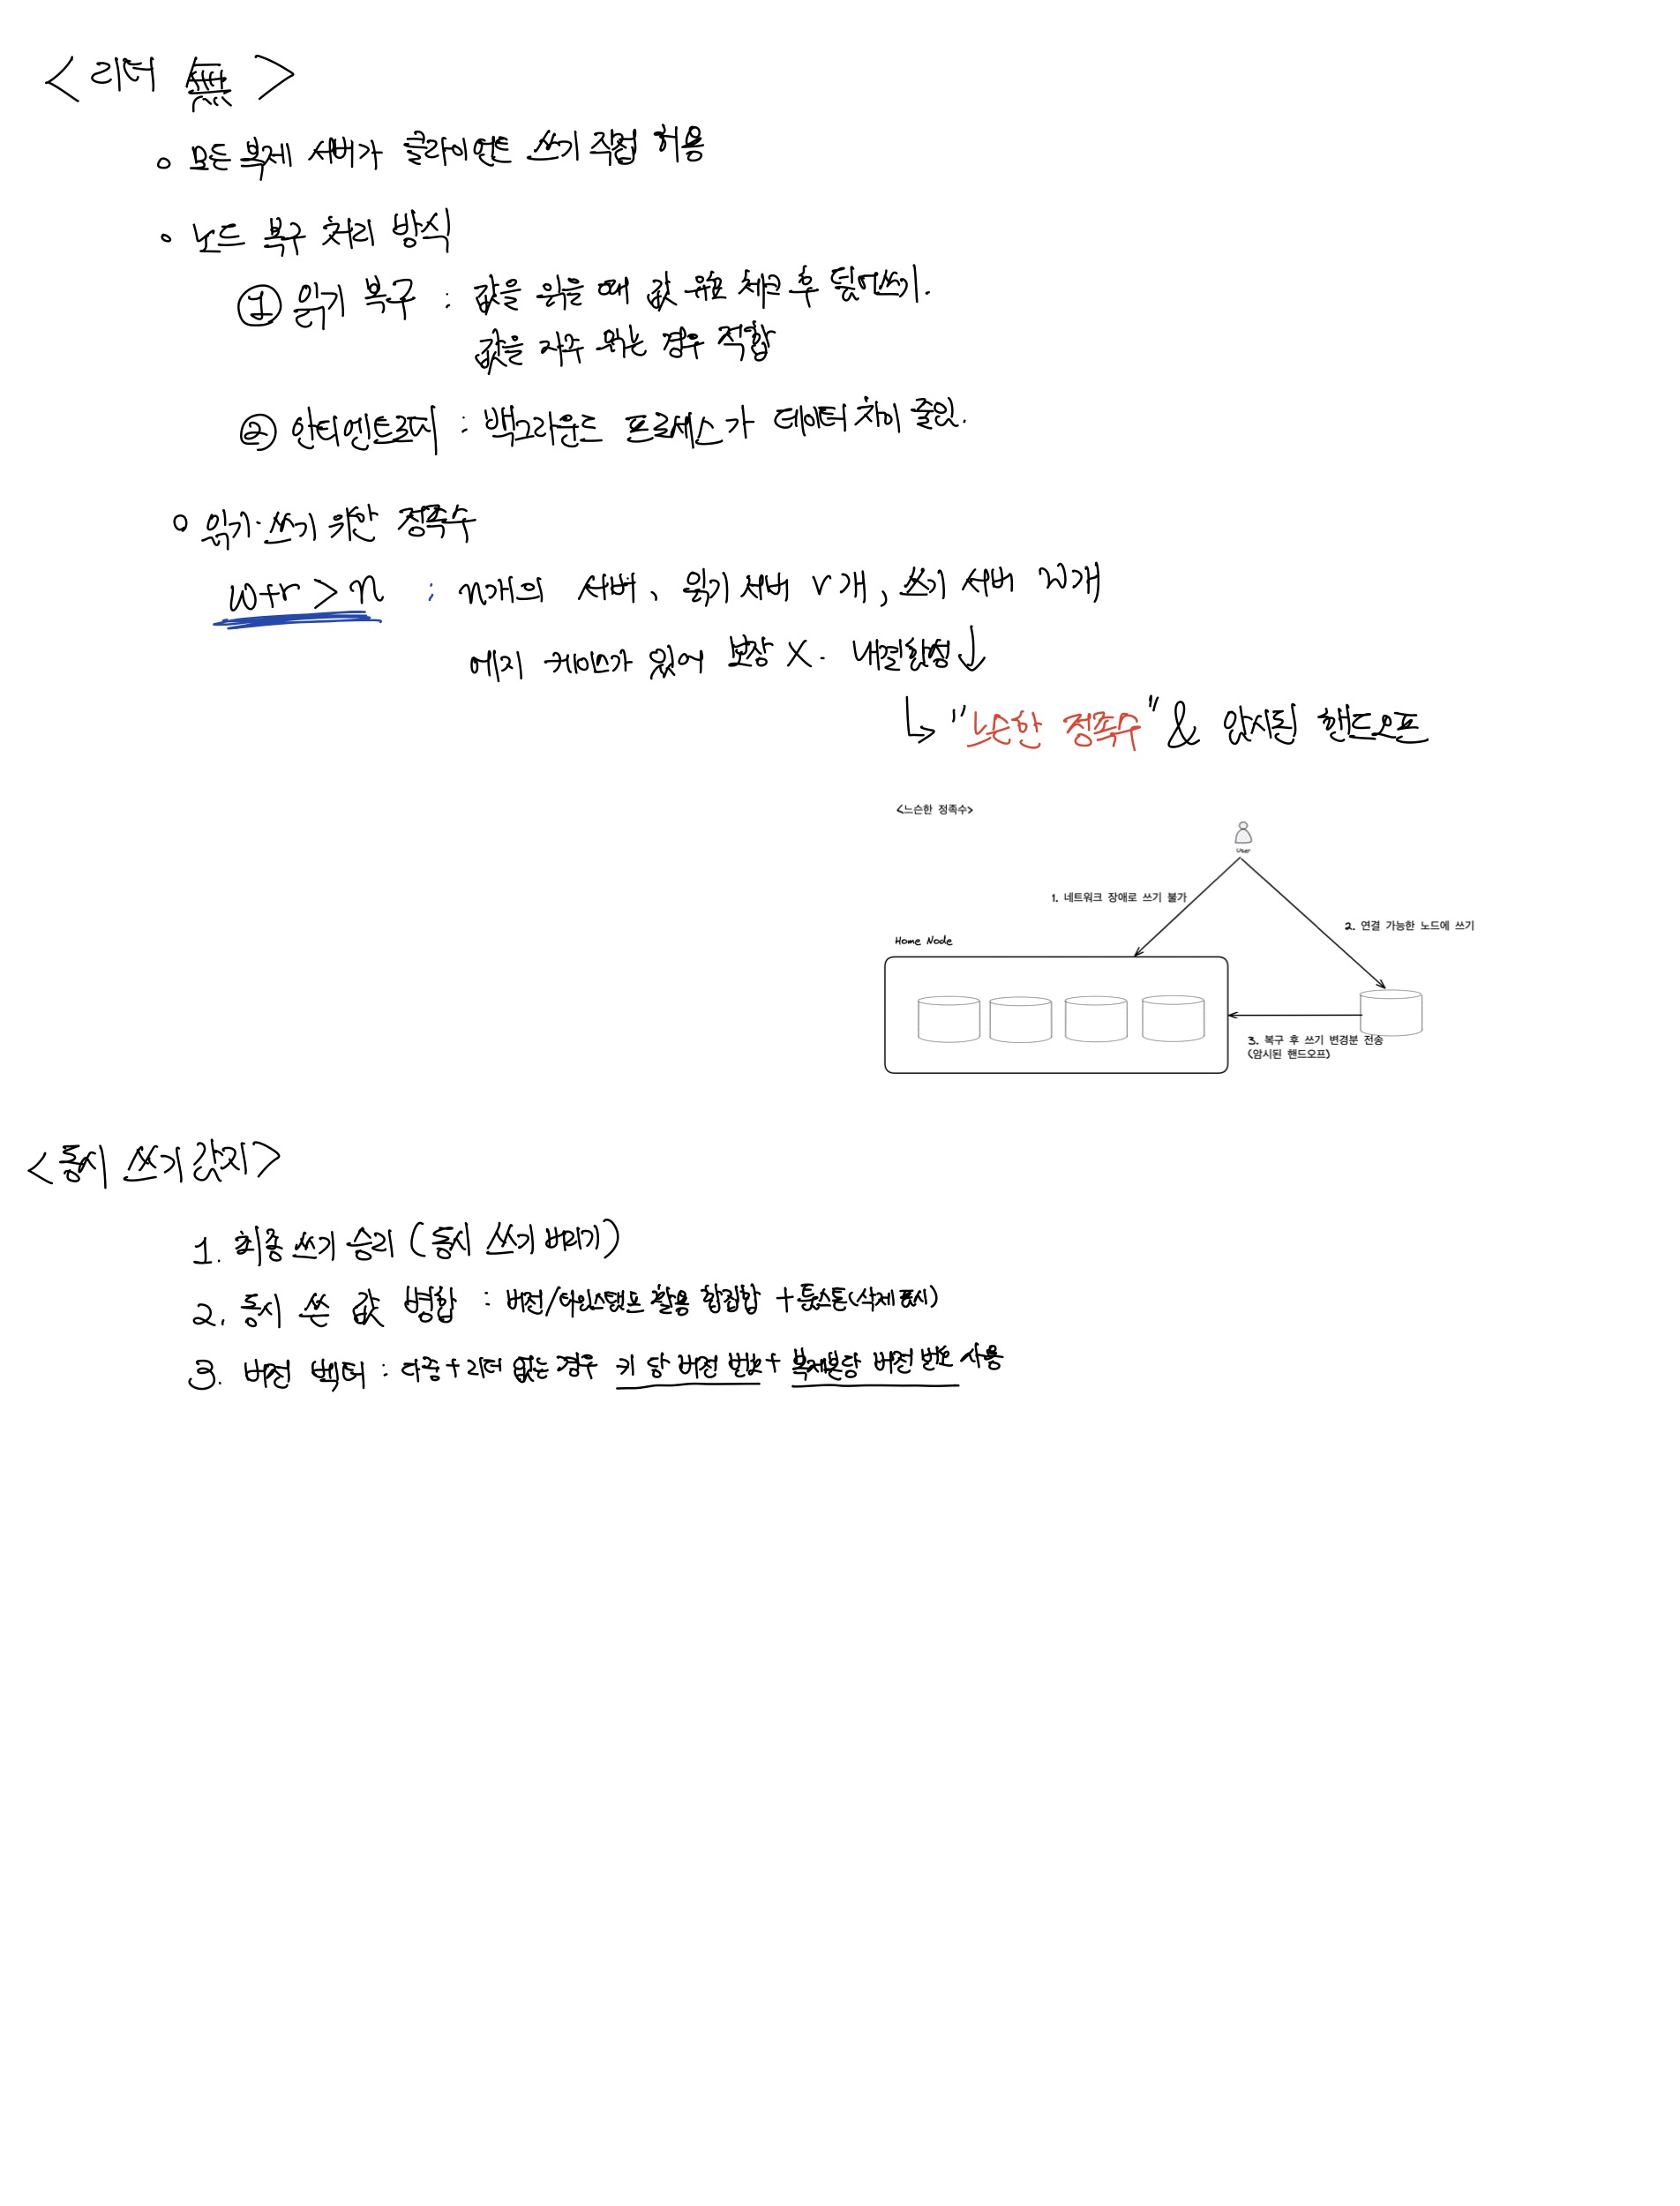 <리더 無>
○ 모든 복제 서버가 클라이언트 쓰기 직접 허용
○ 노드 복구 처리 방식
① 읽기 복구 : 값을 읽을 때 값 유효 체크 후 덮어쓰기.
값을 자주 읽는 경우 적합
② 안티엔트로피 : 백그라운드 프로세스가 데이터 차이 줄임.
○ 읽기·쓰기 위한 정족수
w+r > n : n개의 서버, 읽기 서버 r개, 쓰기 서버 w개
에지 케이스가 있어 보장 X. 내결함성↓
↳ "느슨한 정족수" & 암시된 핸드오프
<느슨한 정족수>
User
1. 네트워크 장애로 쓰기 불가
2. 연결 가능한 노드에 쓰기
Home Node
3. 복구 후 쓰기 변경분 전송
(암시된 핸드오프)
<동시 쓰기 감지>
1. 최종 쓰기 승리 (동시 쓰기 버리기)
2. 동시 쓴 값 병합 : 버전/타임스탬프 활용 합집합 + 툼스톤(삭제 표시)
3. 버전 벡터 : 다중+리더 없는 경우 키 당 버전 번호+ 복제본당 버전 번호 사용